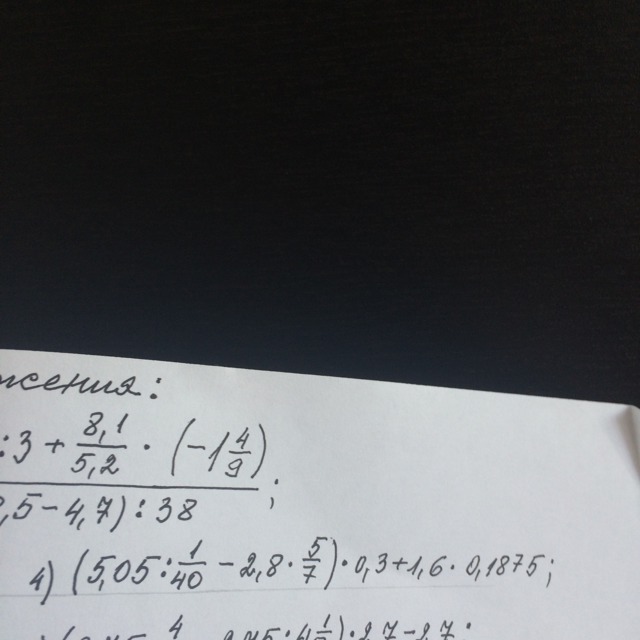 жения:
:3 + 8,1/5,2 · (-1 4/9)
,5-4,7):38 ;
4) (5,05:1/40 - 2,8 · 5/7) · 0,3+1,6 · 0,1875;